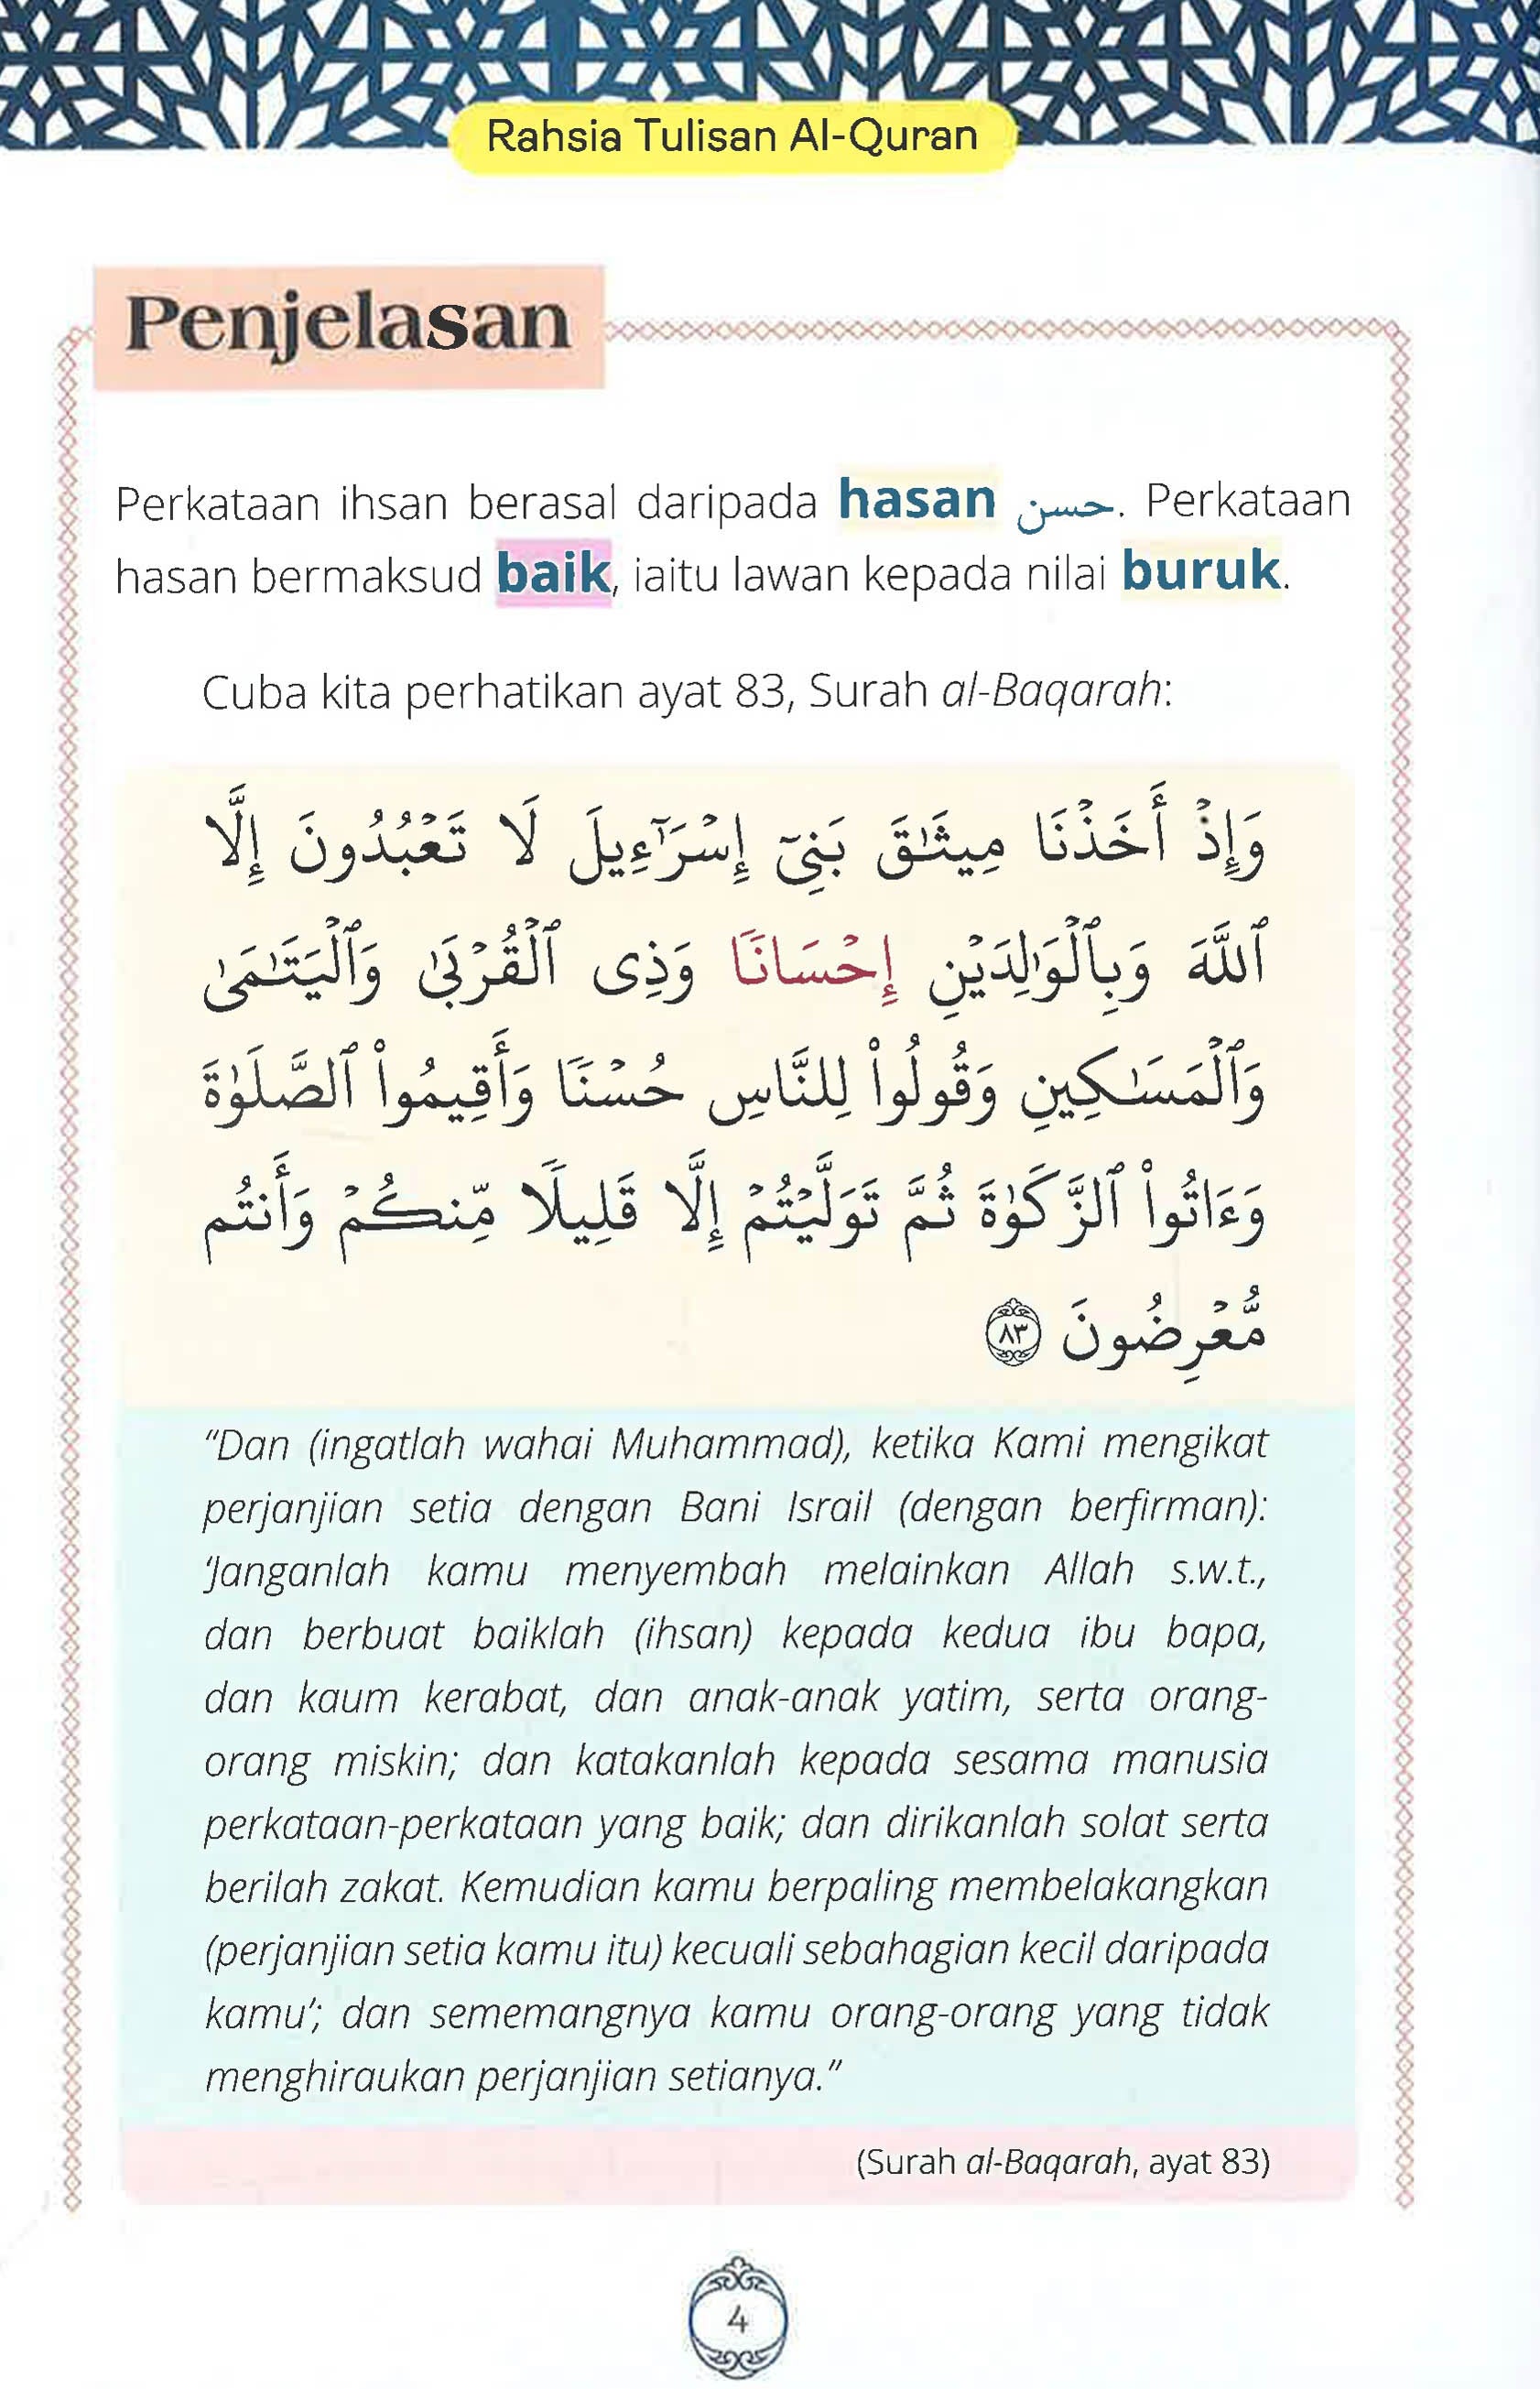 Rahsia Tulisan Al-Quran
Penjelasan
Perkataan ihsan berasal daripada hasan حسن. Perkataan
hasan bermaksud baik, iaitu lawan kepada nilai buruk.
Cuba kita perhatikan ayat 83, Surah al-Baqarah:
وَإِذْ أَخَذْنَا مِيثَٰقَ بَنِىٓ إِسْرَٰٓءِيلَ لَا تَعْبُدُونَ إِلَّا
ٱللَّهَ وَبِٱلْوَٰلِدَيْنِ إِحْسَانًا وَذِى ٱلْقُرْبَىٰ وَٱلْيَتَٰمَىٰ
وَٱلْمَسَٰكِينِ وَقُولُوا۟ لِلنَّاسِ حُسْنًا وَأَقِيمُوا۟ ٱلصَّلَوٰةَ
وَءَاتُوا۟ ٱلزَّكَوٰةَ ثُمَّ تَوَلَّيْتُمْ إِلَّا قَلِيلًا مِّنكُمْ وَأَنتُم
مُّعْرِضُونَ ٨٣
“Dan (ingatlah wahai Muhammad), ketika Kami mengikat
perjanjian setia dengan Bani Israil (dengan berfirman):
‘Janganlah kamu menyembah melainkan Allah s.w.t.,
dan berbuat baiklah (ihsan) kepada kedua ibu bapa,
dan kaum kerabat, dan anak-anak yatim, serta orang-
orang miskin; dan katakanlah kepada sesama manusia
perkataan-perkataan yang baik; dan dirikanlah solat serta
berilah zakat. Kemudian kamu berpaling membelakangkan
(perjanjian setia kamu itu) kecuali sebahagian kecil daripada
kamu’; dan sememangnya kamu orang-orang yang tidak
menghiraukan perjanjian setianya.”
(Surah al-Baqarah, ayat 83)
4